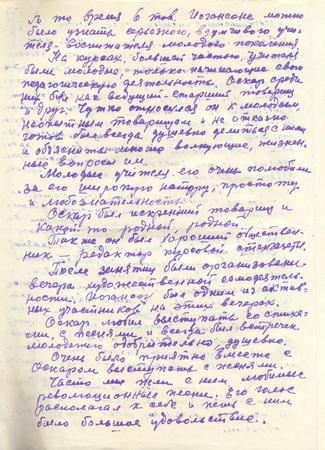 В то время в тов. Иогансоне можно
было узнать серьезного, вдумчивого учи-
теля-воспитателя молодого поколения.
На курсах, большей частью, учителя
были молодые, только начинающие свою
педагогическую деятельность. Оскар среди
них был как ведущий-старший товарищ
и друг. Чутко относился он к молодым,
неопытным товарищам и не отказно
готов был всегда душевно делиться с ними
и объяснять многие волнующие, жизнен-
ные вопросы им.
Молодые учителя его очень полюбили
за его широкую натуру, простоту
и любознательность.
Оскар был искренний товарищ и
какой то родной, родной.
Также он был хороший обществен-
ник – редактор курсовой стенгазеты.
После занятий были организованы
вечера художественной самодеятель-
ности. Иогансон был одним из актив-
ных участников на этих вечерах.
Оскар любил выступать со стиха-
ми, с песнями и всегда был встречен
молодежью одобрительно, душевно.
Очень было приятно вместе с
Оскаром выступать с песнями.
Часто мы пели с ним любимые
революционные песни. Его голос
располагал к себе и петь с ним
было большое удовольствие.